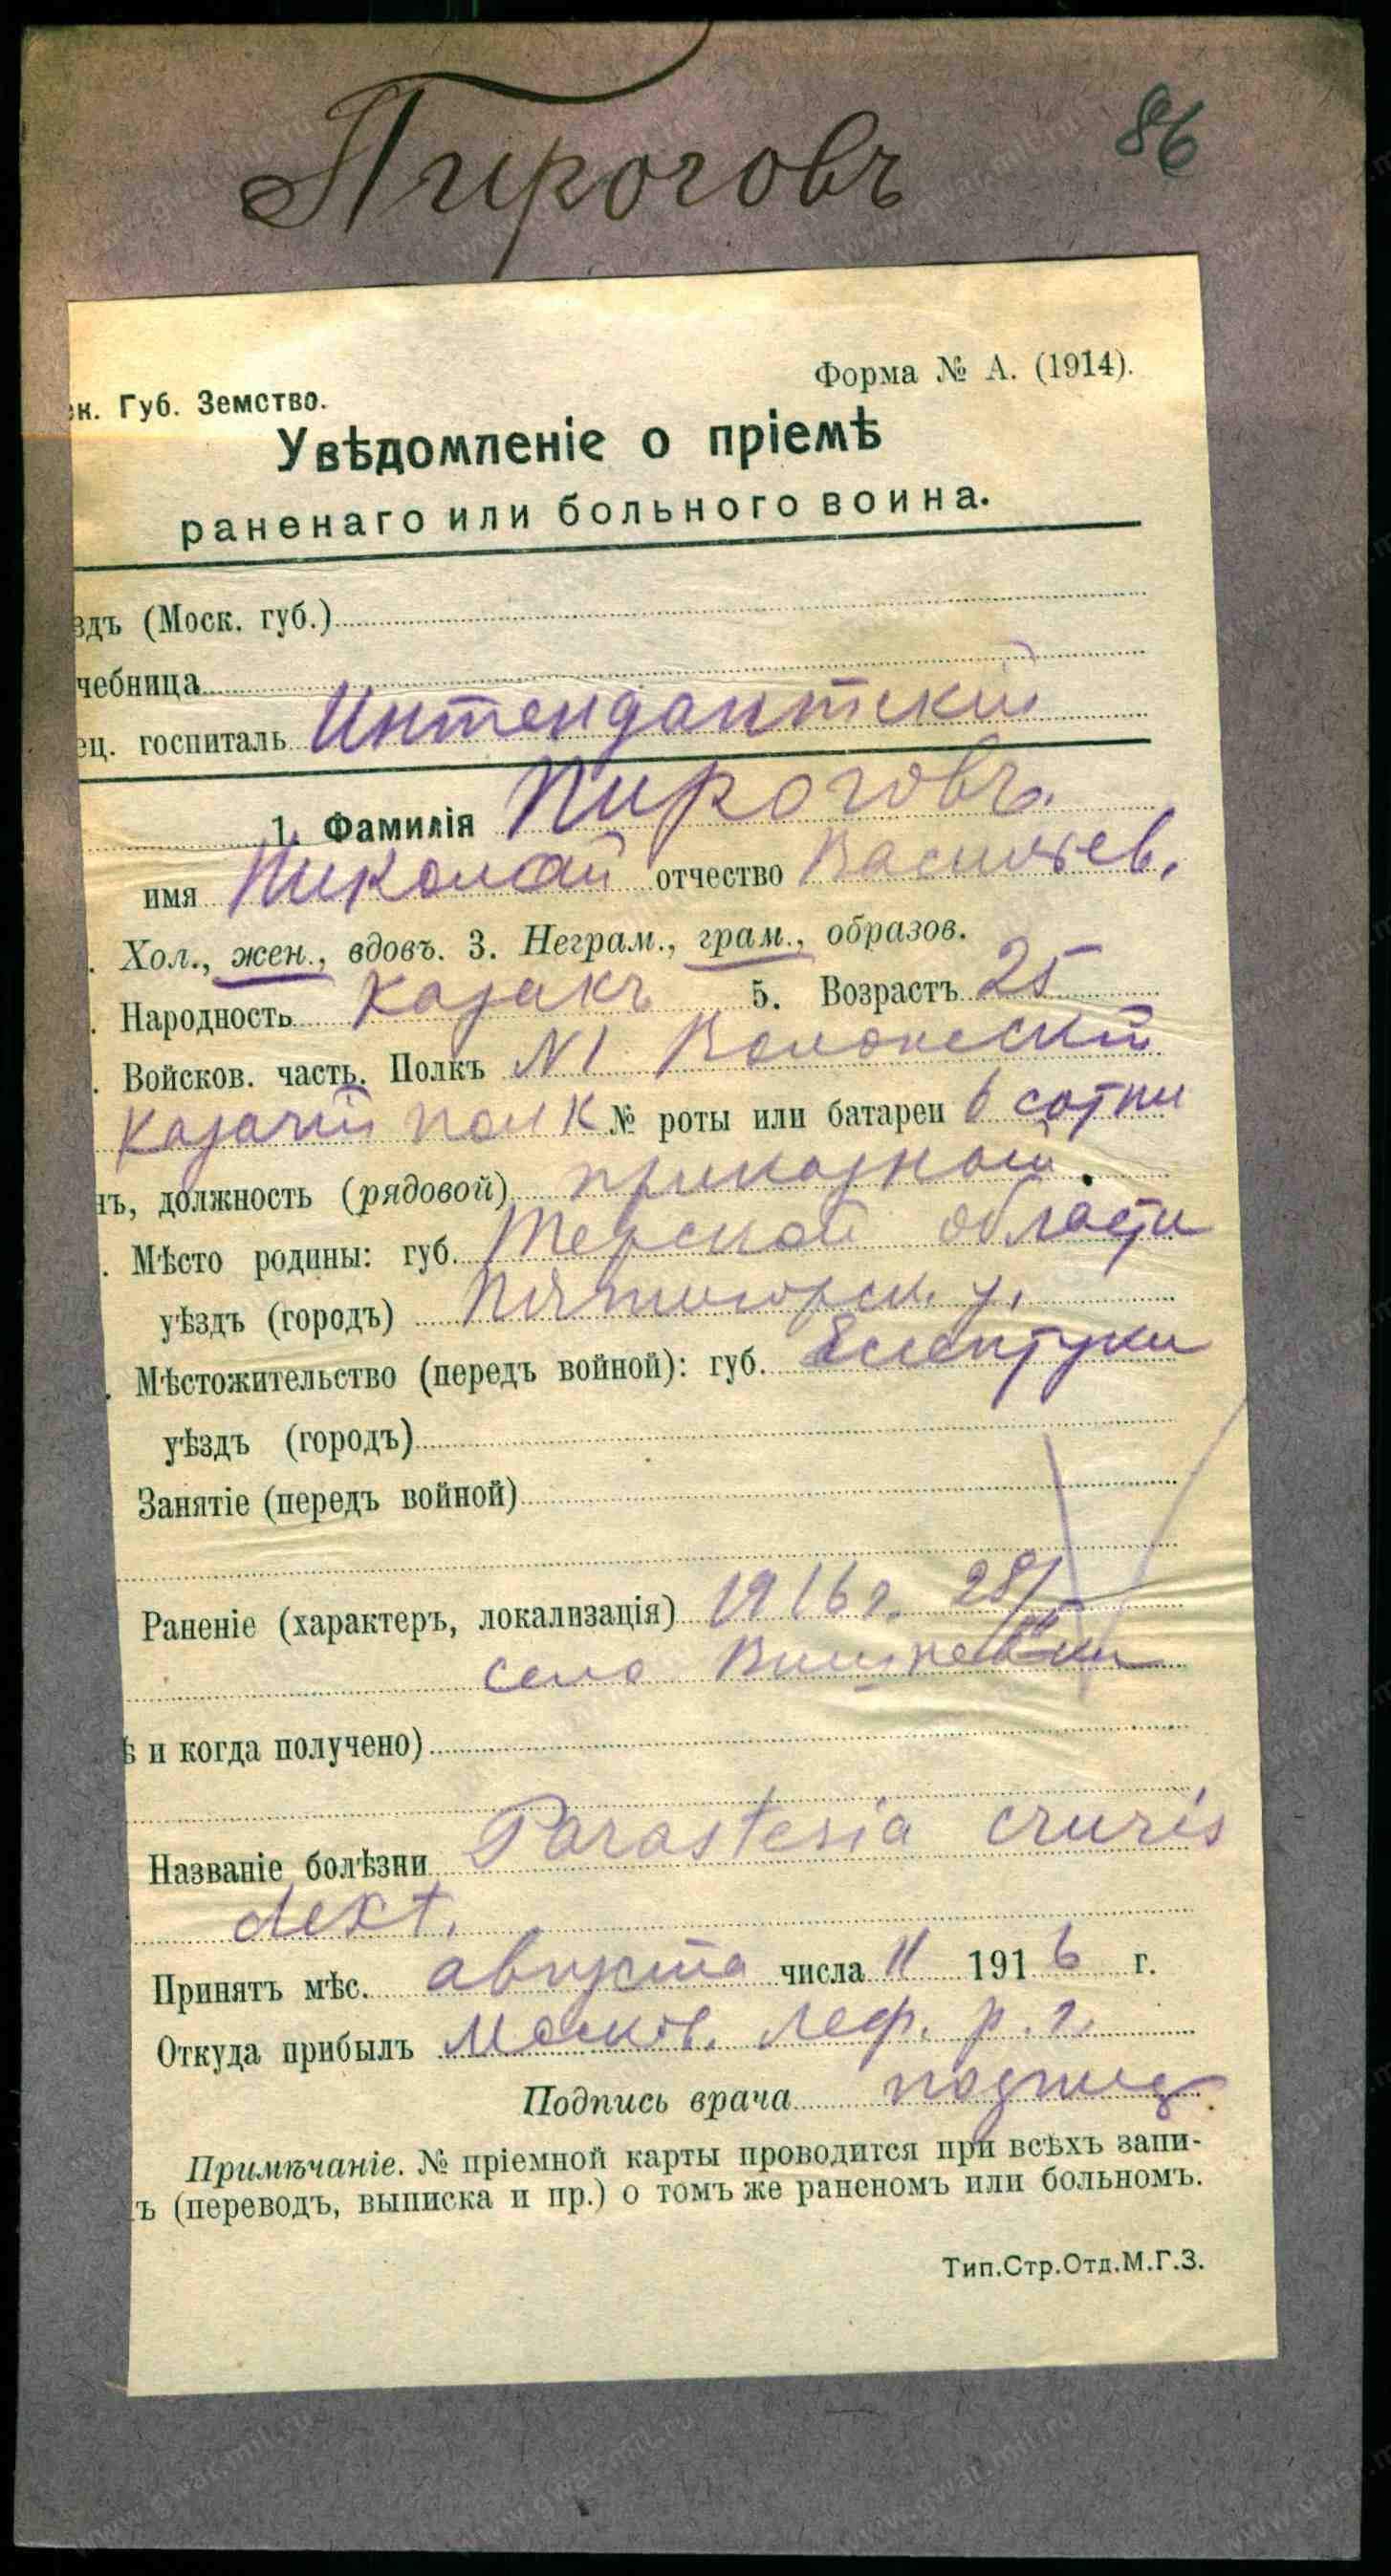 Пироговъ 86
Форма № А. (1914).
ск. Губ. Земство.
Увѣдомленіе о пріемѣ
раненаго или больного воина.
здъ (Моск. губ.)
чебница
ец. госпиталь Интендантский
1. Фамилія Пироговъ.
имя Николай отчество Васильев.
. Хол., жен., вдовъ. 3. Неграм., грам., образов.
. Народность Казакъ 5. Возрастъ 25
. Войсков. часть. Полкъ N 1 Волгскии
Казачий полк № роты или батареи 6 сотни
нъ, должность (рядовой) приказной.
. Мѣсто родины: губ. Терской области
уѣздъ (городъ) Пятигорск. у.
. Мѣстожительство (передъ войной): губ. Есентуки
уѣздъ (городъ)
Занятіе (передъ войной)
Раненіе (характеръ, локализація) 1916 г. 28/
село
ѣ и когда получено)
Названіе болѣзни Parastesia cruris
dext.
Принятъ мѣс. августа числа 11 1916 г.
Откуда прибылъ Москов. Леф. р. г.
Подпись врача подпись.
Примѣчаніе. № пріемной карты проводится при всѣхъ запи-
ъ (переводъ, выписка и пр.) о томъ же раненомъ или больномъ.
Тип.Стр.Отд.М.Г.З.